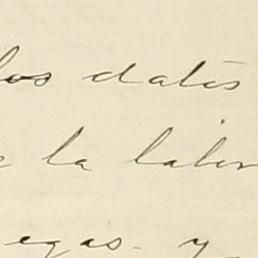 los datos
la labor
egas. y